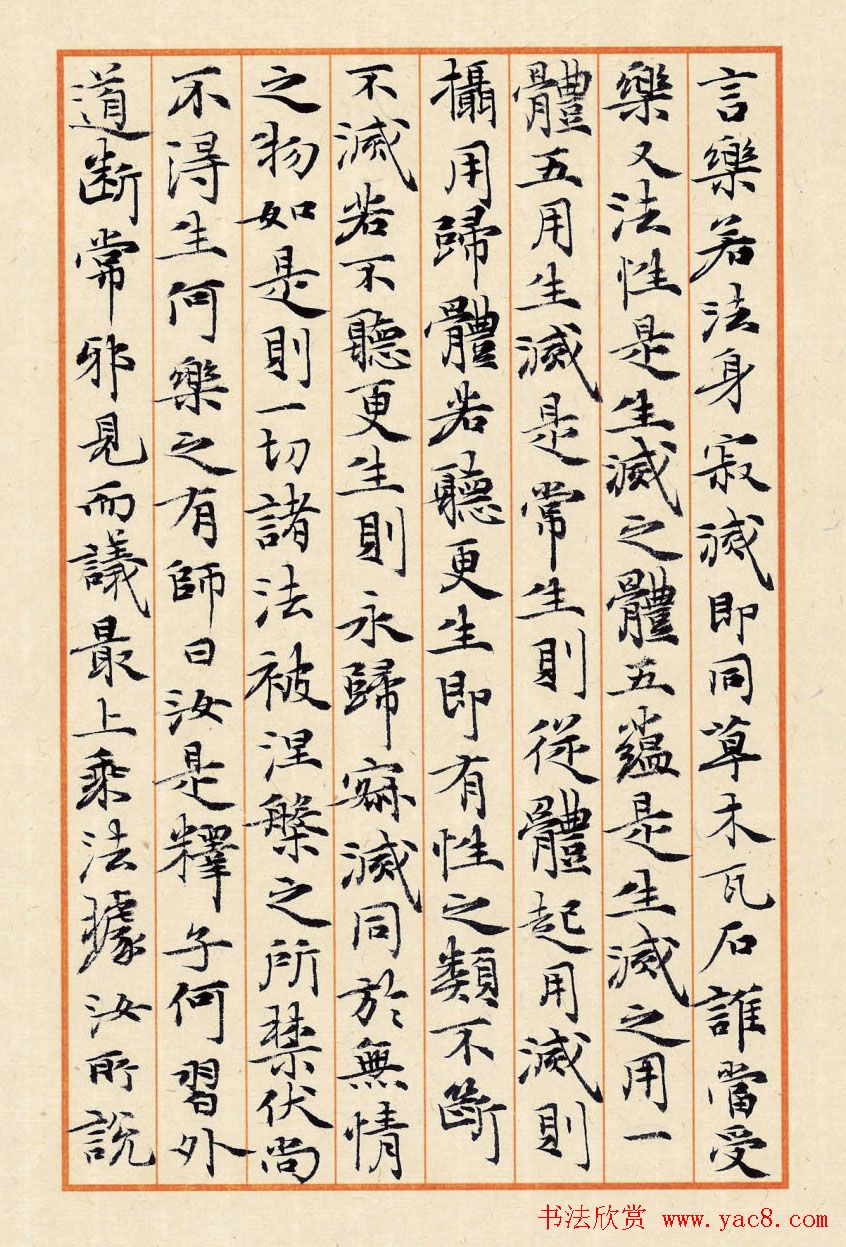 言樂若法身寂滅即同草木瓦石誰當受
樂又法性是生滅之體五蘊是生滅之用一
體五用生滅是常生則從體起用滅則
攝用歸體若聽更生即有性之類不斷
不滅若不聽更生則永歸寂滅同於無情
之物如是則一切諸法被涅槃之所禁伏尚
不得生何樂之有師曰汝是釋子何習外
道斷常邪見而議最上乘法據汝所說
书法欣赏 www.yac8.com